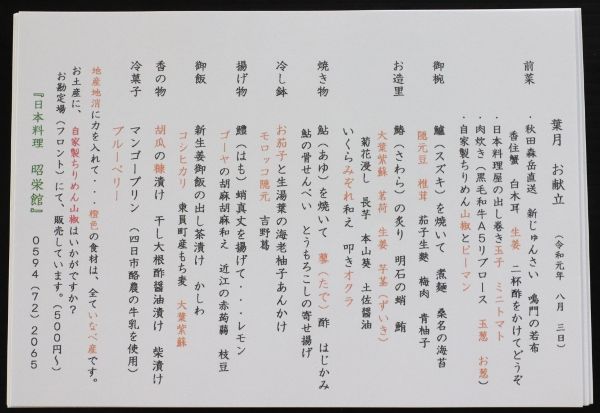 葉月　お献立　（令和元年　八月　三日）
前菜　・秋田森岳直送　新じゅんさい　鳴門の若布
香住蟹　白木耳　生姜　二杯酢をかけてどうぞ
・日本料理屋の出し巻き玉子　ミニトマト
・肉炊き（黒毛和牛A5リブロース　玉葱　お葱）
・自家製ちりめん山椒とピーマン
御椀　鱸（スズキ）を焼いて　煮麺　桑名の海苔
隠元豆　椎茸　茄子生麩　梅肉　青柚子
お造里　鰆（さわら）の炙り　明石の蛸　鮪
大葉紫蘇　茗荷　生姜　芋茎（ずいき）
菊花浸し　長芋　本山葵　土佐醤油
いくらみぞれ和え　叩きオクラ
焼き物　鮎（あゆ）を焼いて　蓼（たで）酢　はじかみ
鮎の骨せんべい　とうもろこしの寄せ揚げ
冷し鉢　お茄子と生湯葉の海老柚子あんかけ
モロッコ隠元　吉野葛
揚げ物　鱧（はも）蛸真丈を揚げて・・・レモン
ゴーヤの胡麻胡麻和え　近江の赤蒟蒻　枝豆
御飯　新生姜御飯の出し茶漬け　かしわ
コシヒカリ　東員町産もち麦　大葉紫蘇
香の物　胡瓜の糠漬け　干し大根酢醤油漬け　柴漬け
冷菓子　マンゴープリン　（四日市酪農の牛乳を使用）
ブルーベリー
地産地消に力を入れて・・・橙色の食材は、全ていなべ産です。
お土産に、自家製ちりめん山椒はいかがですか？
お勘定場（フロント）にて、販売しています。（５００円～）
『日本料理　昭栄館』　０５９４（７２）２０６５